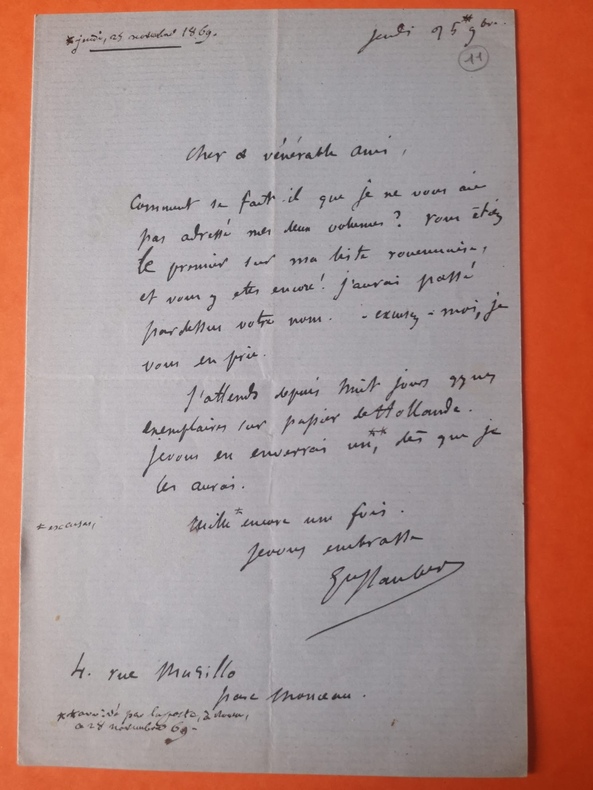 *jeudi, 25 novembre 1869.
jeudi 25* 9bre.
11
Cher & vénérable ami,
Comment se fait-il que je ne vous aie
pas adressé mes deux volumes? vous étiez
le premier sur ma liste rouennaise,
et vous y etes encore! j'aurai passé
pardessus votre nom. - excusez-moi, je
vous en prie.
J'attends depuis huit jours qques
exemplaires sur papier de Hollande.
je vous en enverrai un,** dès que je
les aurai.
Mille* encore une fois.
*excuses,
je vous embrasse
Gve Flaubert
4. rue Murillo
parc Monceau.
** par la poste,
28 novembre 69-